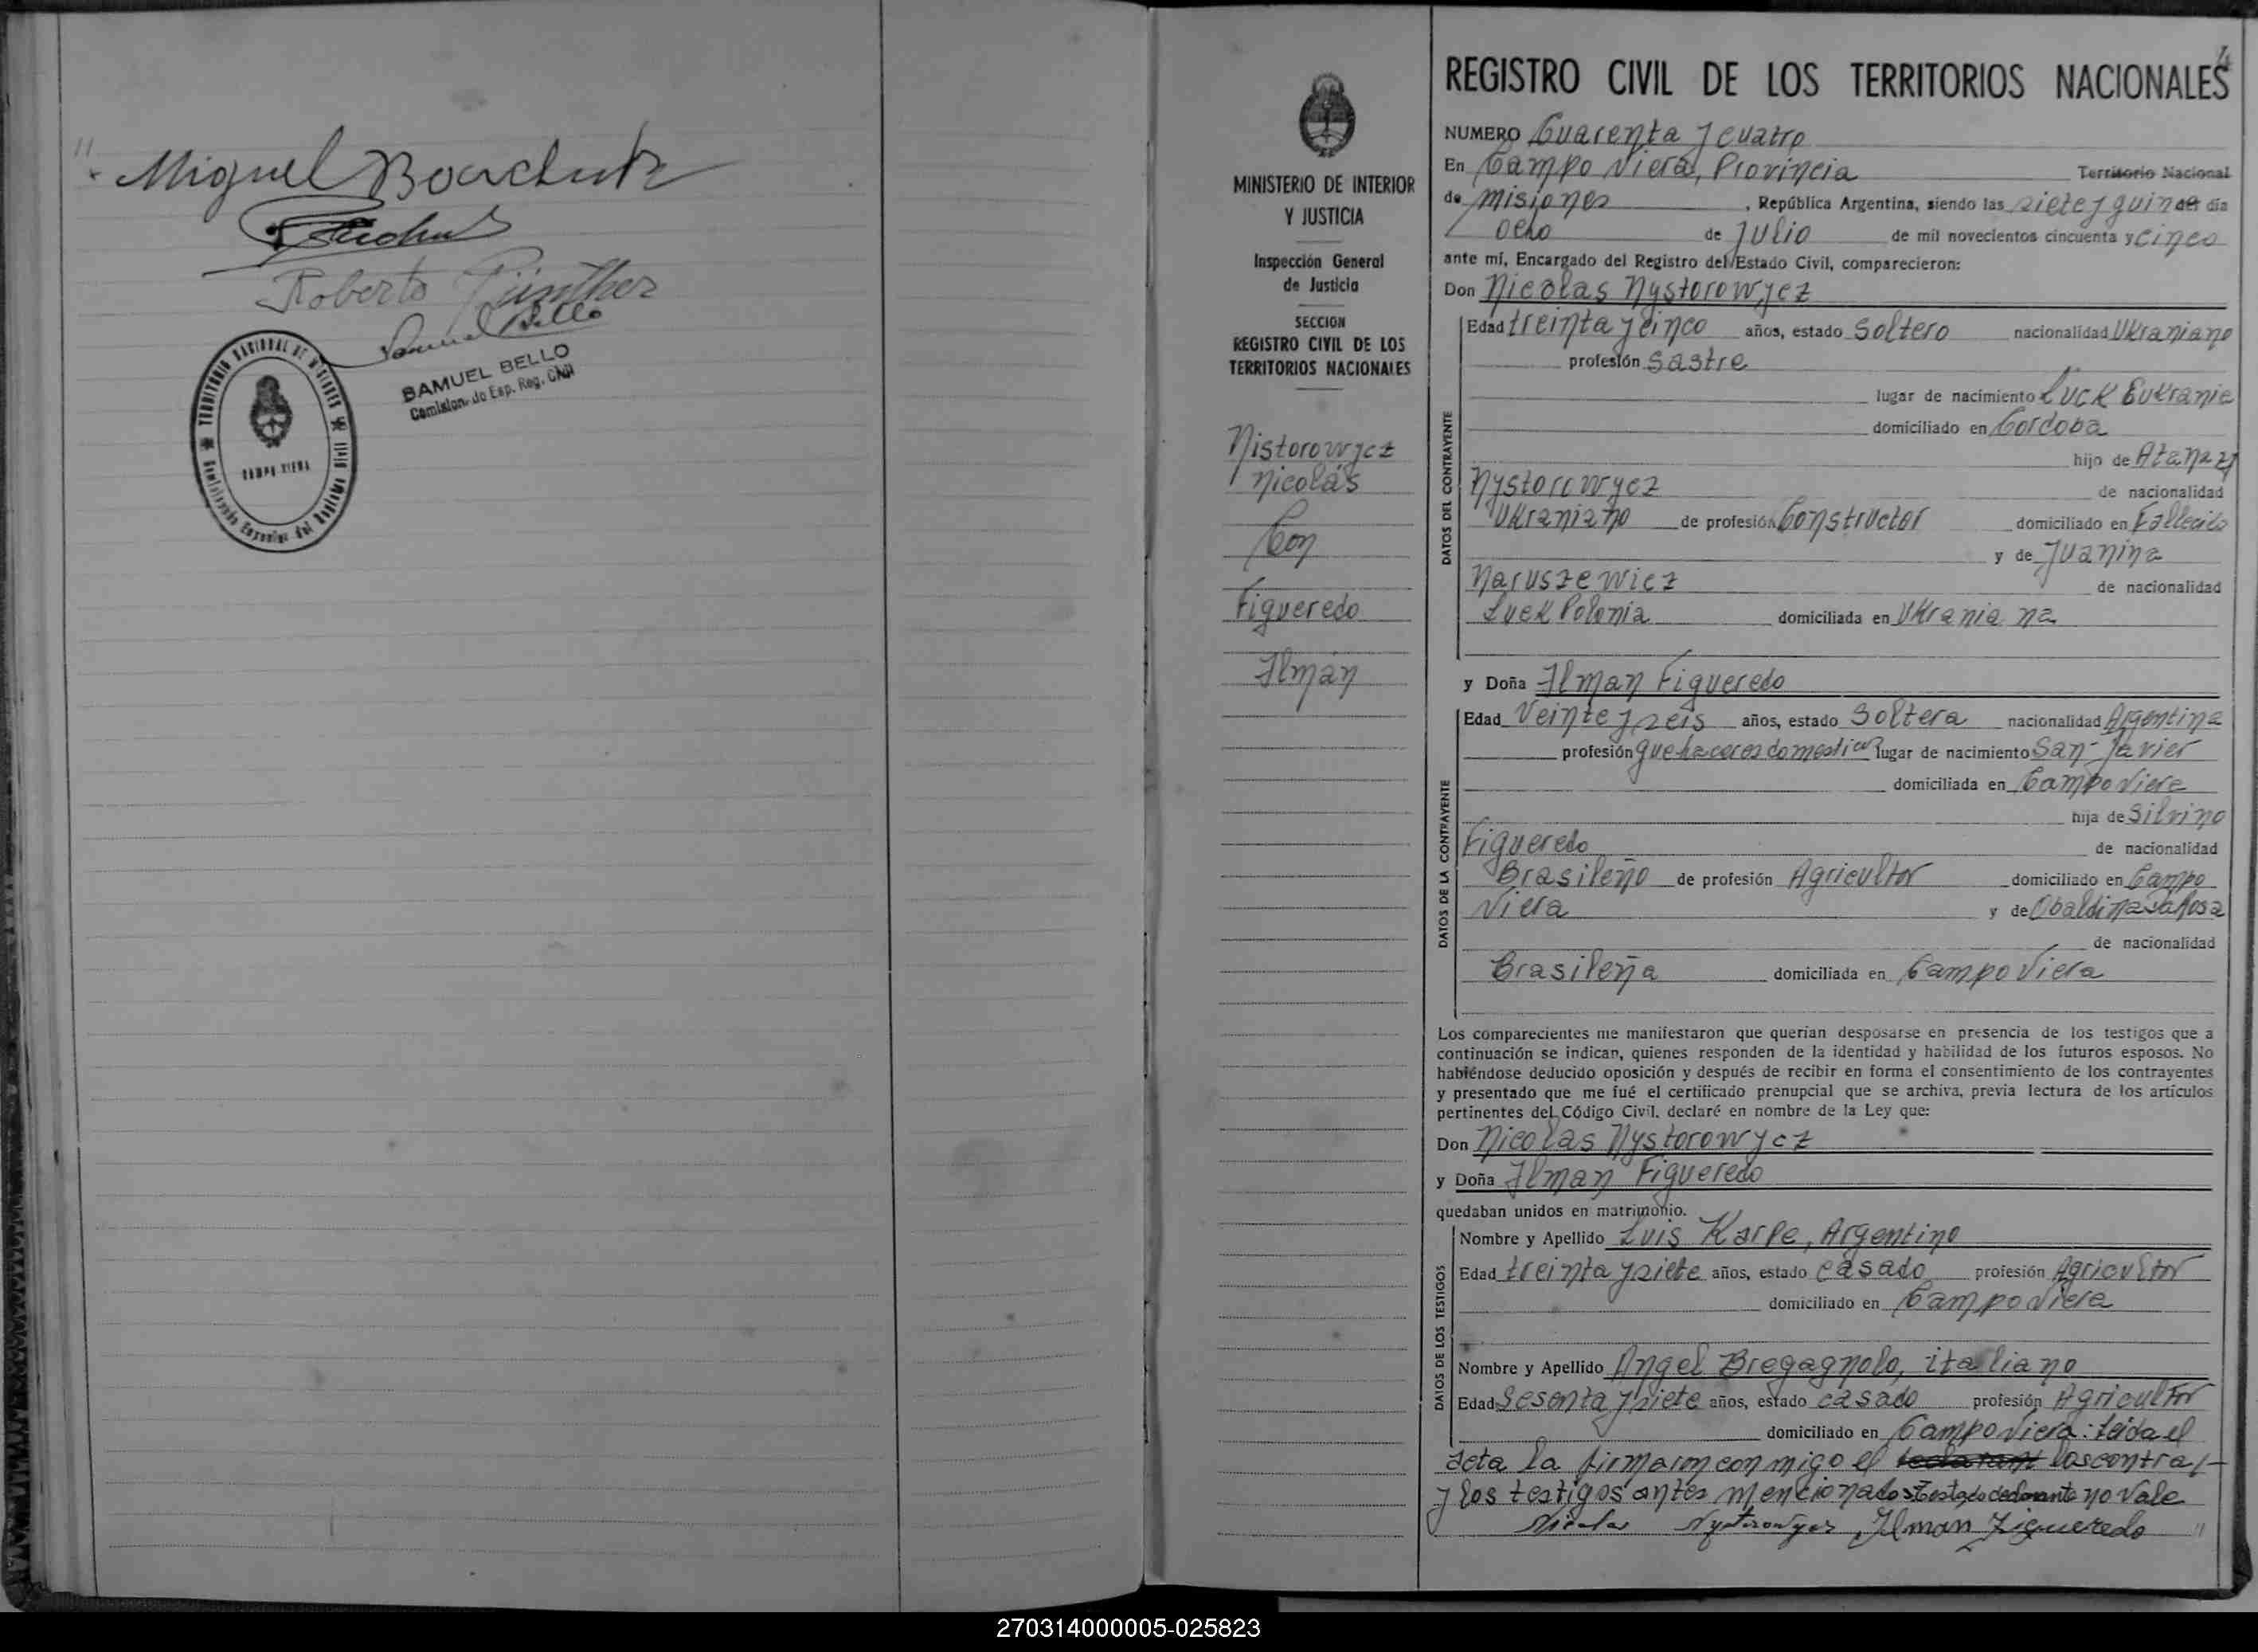 "
Miguel Boachuk
Roberto Günther
Samuel Bello
SAMUEL BELLO
Comision. de Esp. Reg. Civil
TERRITORIO NACIONAL DE MISIONES
CAMPO VIERA
Comisionado Especial del Registro Civil
4
MINISTERIO DE INTERIOR
Y JUSTICIA
Inspección General
de Justicia
SECCION
REGISTRO CIVIL DE LOS
TERRITORIOS NACIONALES
Nistorowycz
Nicolás
Con
Figueredo
Ilmán
REGISTRO CIVIL DE LOS TERRITORIOS NACIONALES
NUMERO Cuarenta y cuatro
En Campo Viera, Provincia Territorio Nacional
de Misiones, República Argentina, siendo las siete y quince día
ocho de Julio de mil novecientos cincuenta y cinco
ante mí, Encargado del Registro del Estado Civil, comparecieron:
Don Nicolas Nystorowycz
DATOS DEL CONTRAYENTE
Edad treinta y cinco años, estado Soltero nacionalidad Ukraniano
profesión Sastre
lugar de nacimiento Luck Eukranie
domiciliado en Cordoba
hijo de Atanazy
Nystorowycz de nacionalidad
Ukraniano de profesión Constructor domiciliado en Fallecido
y de Juanina
Naruszewicz de nacionalidad
Luck Polonia domiciliada en Ukrania na
y Doña Ilman Figueredo
DATOS DE LA CONTRAYENTE
Edad Veinte y seis años, estado Soltera nacionalidad Argentina
profesión quehaceres domestico lugar de nacimiento San Javier
domiciliada en Campo Viera
hija de Silvino
Figueredo de nacionalidad
Brasileño de profesión Agricultor domiciliado en Campo
Viera y de Obaldina
de nacionalidad
Brasileña domiciliada en Campo Viera
Los comparecientes me manifestaron que querían desposarse en presencia de los testigos que a
continuación se indican, quienes responden de la identidad y habilidad de los futuros esposos. No
habiéndose deducido oposición y después de recibir en forma el consentimiento de los contrayentes
y presentado que me fué el certificado prenupcial que se archiva, previa lectura de los artículos
pertinentes del Código Civil, declaré en nombre de la Ley que:
Don Nicolas Nystorowycz
y Doña Ilman Figueredo
quedaban unidos en matrimonio.
DATOS DE LOS TESTIGOS
Nombre y Apellido Luis Karpe, Argentino
Edad treinta y siete años, estado casado profesión Agricultor
domiciliado en Campo Viera
Nombre y Apellido Angel Bregagnolo, italiano
Edad Sesenta y siete años, estado casado profesión Agricultor
domiciliado en Campo Viera: Leida el
acta la firmaron conmigo el los contray-
y los testigos antes mencionados Testado declarante no Vale
Nicolas Nystorowycz, Ilman Figueredo "
270314000005-025823